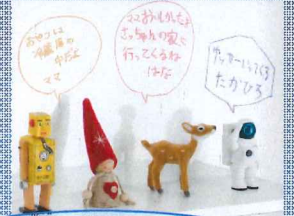 おやつは
冷蔵庫の
中だよ
ママ
ママおかえり
さっちゃんの家に
行ってくるね
はな
サッカーいってくる
たかひろ